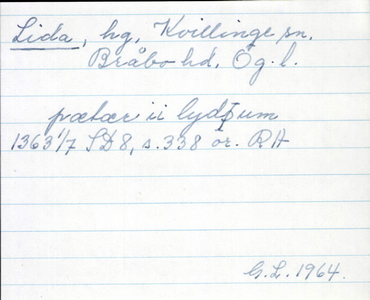 Lida, hg, Kvillinge sn.
Bråbo hd, Ög. l.
pætær ii lydhum
1363 1/7 SD 8, s. 338 or. RA
G. L. 1964.